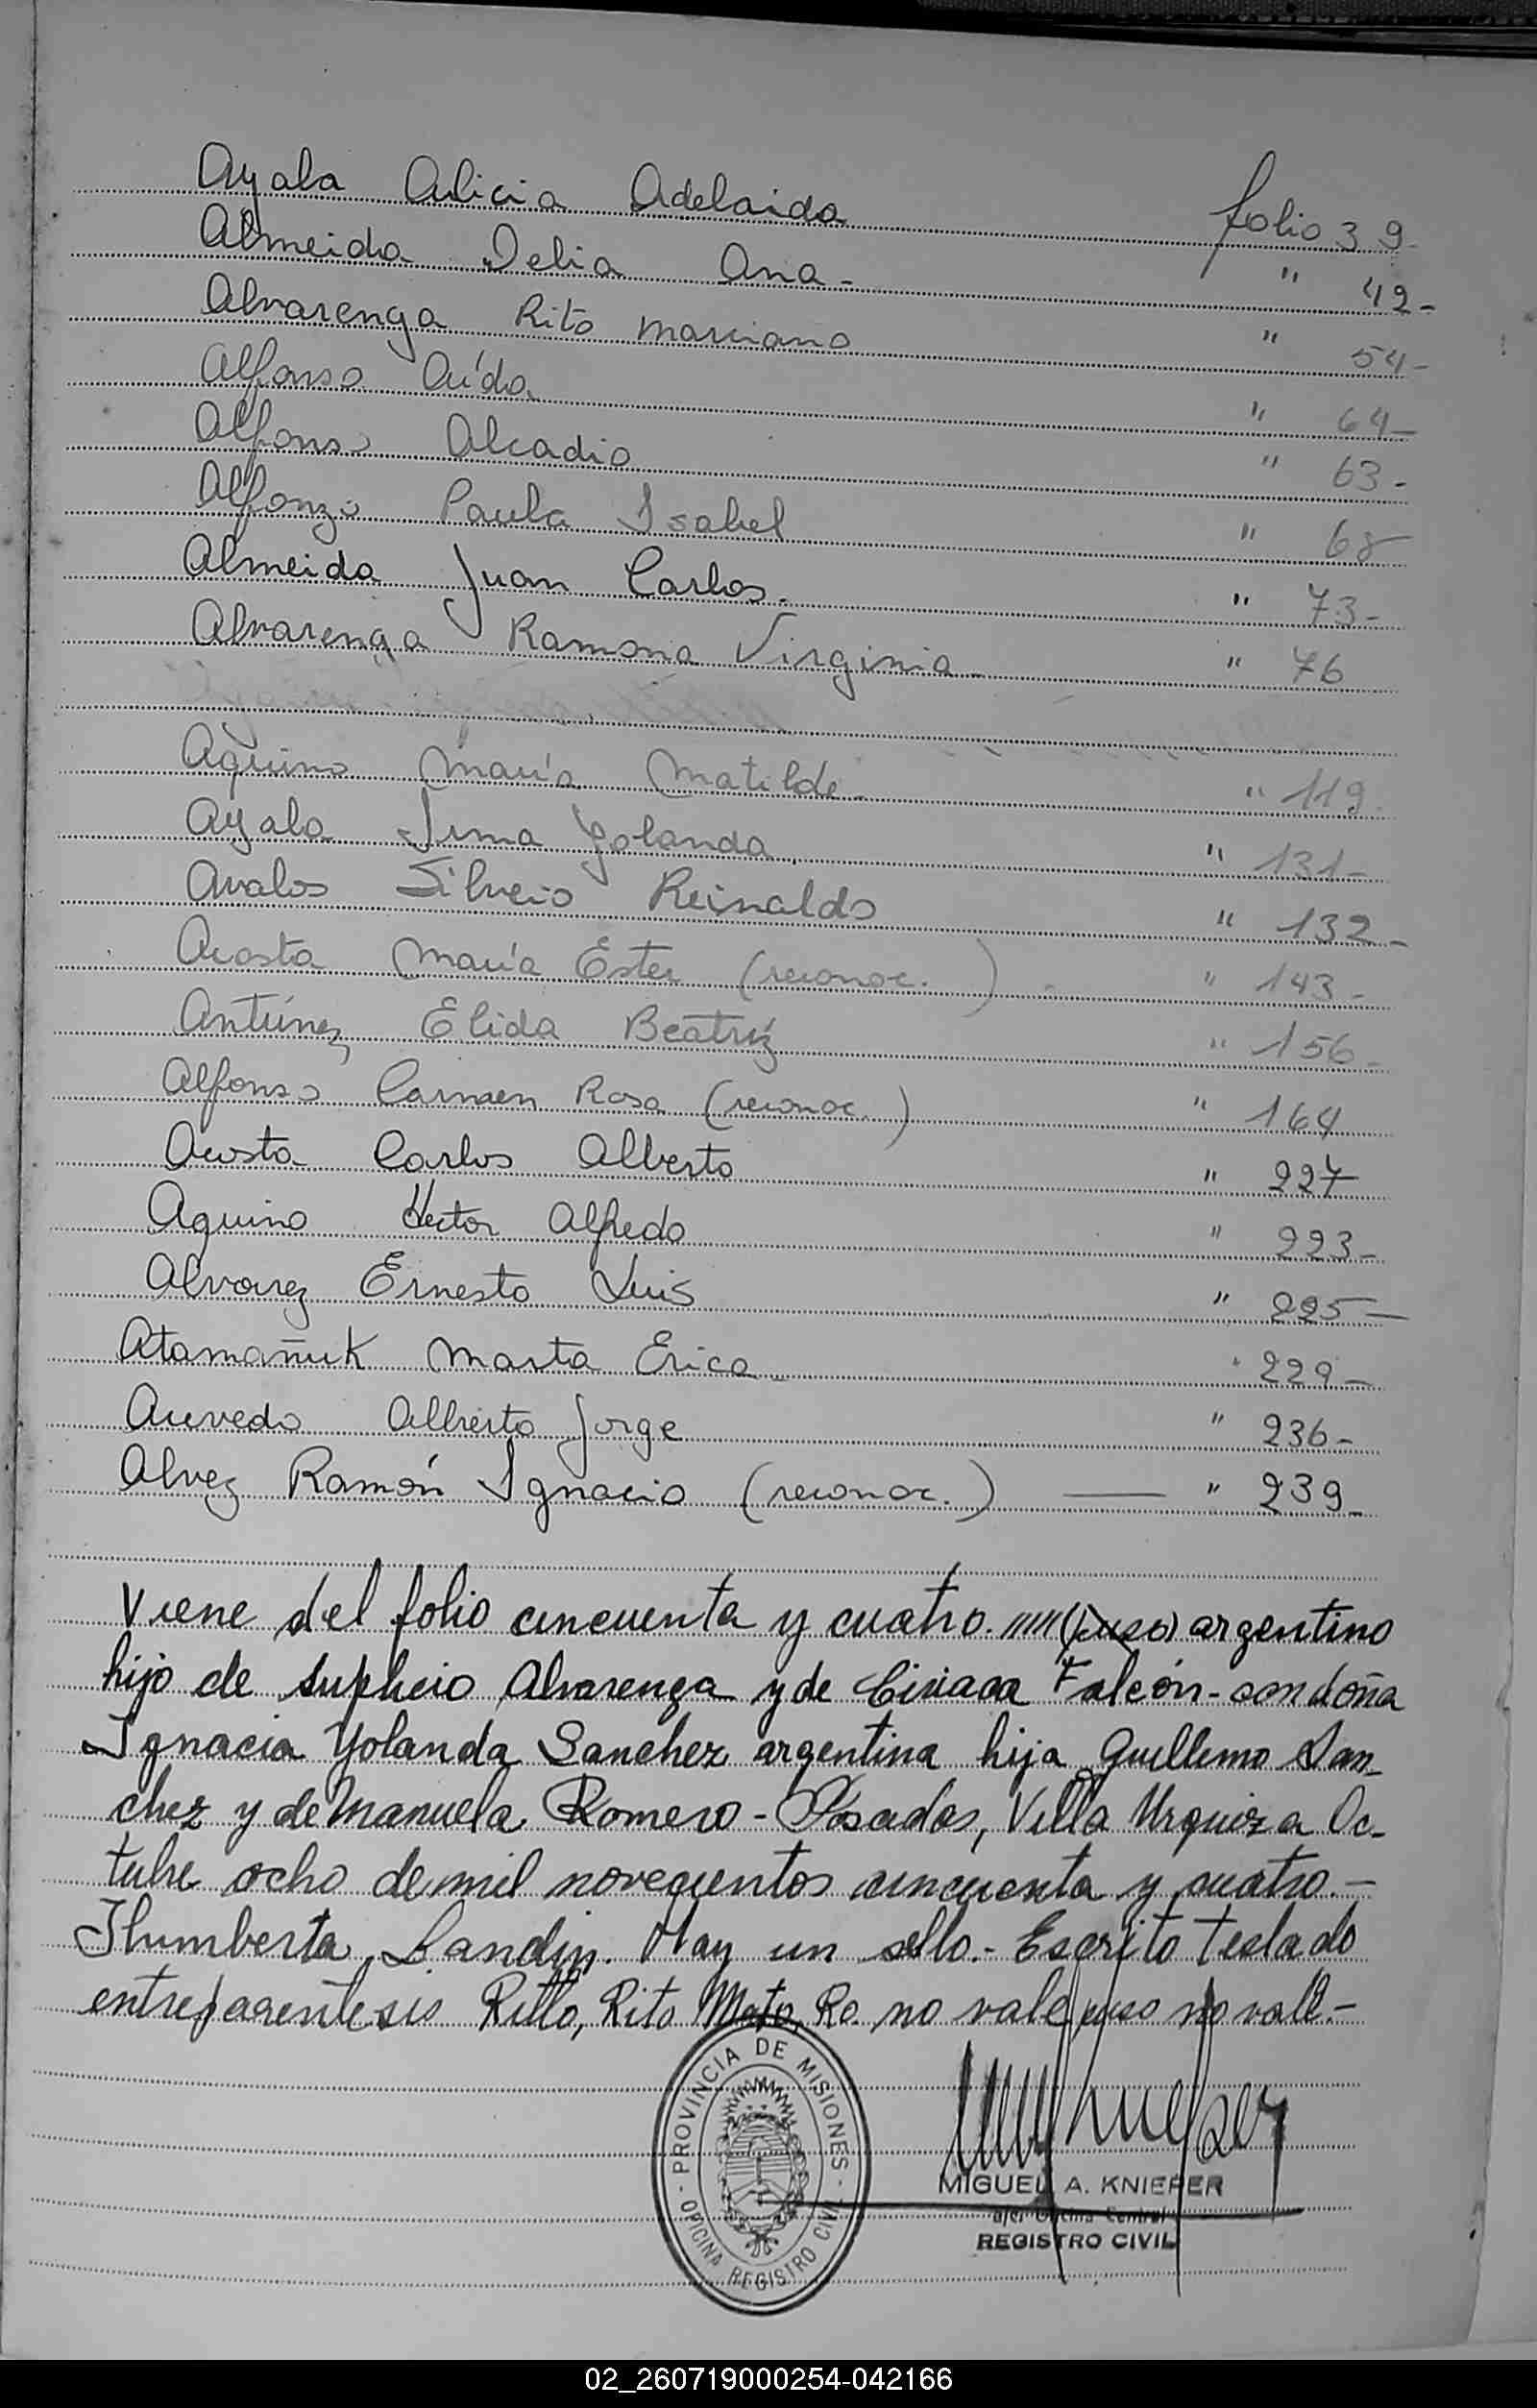 Ayala Alicia Adelaida folio 39-
Almeida Delia Ana - " 42-
Alvarenga Rito Marciano " 54-
Alfonso Aída " 64-
Alfonso Alcadio " 63-
Alfonzo Paula Isabel " 68
Almeida Juan Carlos. " 73-
Alvarenga Ramona Virginia " 76
Aquino María Matilde - " 119
Ayala Irma Yolanda " 131-
Avalos Silverio Reinaldo " 132-
Acosta María Ester (reconoc.) " 143-
Antúnez Elida Beatríz " 156-
Alfonso Carmen Rosa (reconoc.) " 164
Acosta Carlos Alberto " 227
Aquino Hector Alfredo " 223-
Alvarez Ernesto Luis " 225-
Atamañuk Marta Erica " 229-
Acevedo Alberto Jorge " 236-
Alvez Ramón Ignacio (reconoc.) — " 239-
Viene del folio cincuenta y cuatro. argentino
hijo de Suplicio Alvarenga y de Ciriaca Falcón - con doña
Ignacia Yolanda Sanchez argentina hija Guillermo San-
chez y de Manuela Romero - Posadas, Villa Urquiza Oc-
tubre ocho de mil novecientos cincuenta y cuatro.-
Humberta Landin. Hay un sello.- Escrito testado
entreparentesis Ritto, Rito Ro. no vale no vale.-
PROVINCIA DE MISIONES - OFICINA REGISTRO CIVIL
MIGUEL A. KNIEPER
a/c. Oficina Central
REGISTRO CIVIL
02_260719000254-042166